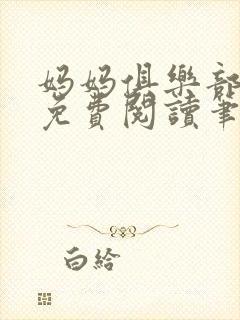 妈妈俱樂部
免費閱讀筆
白給